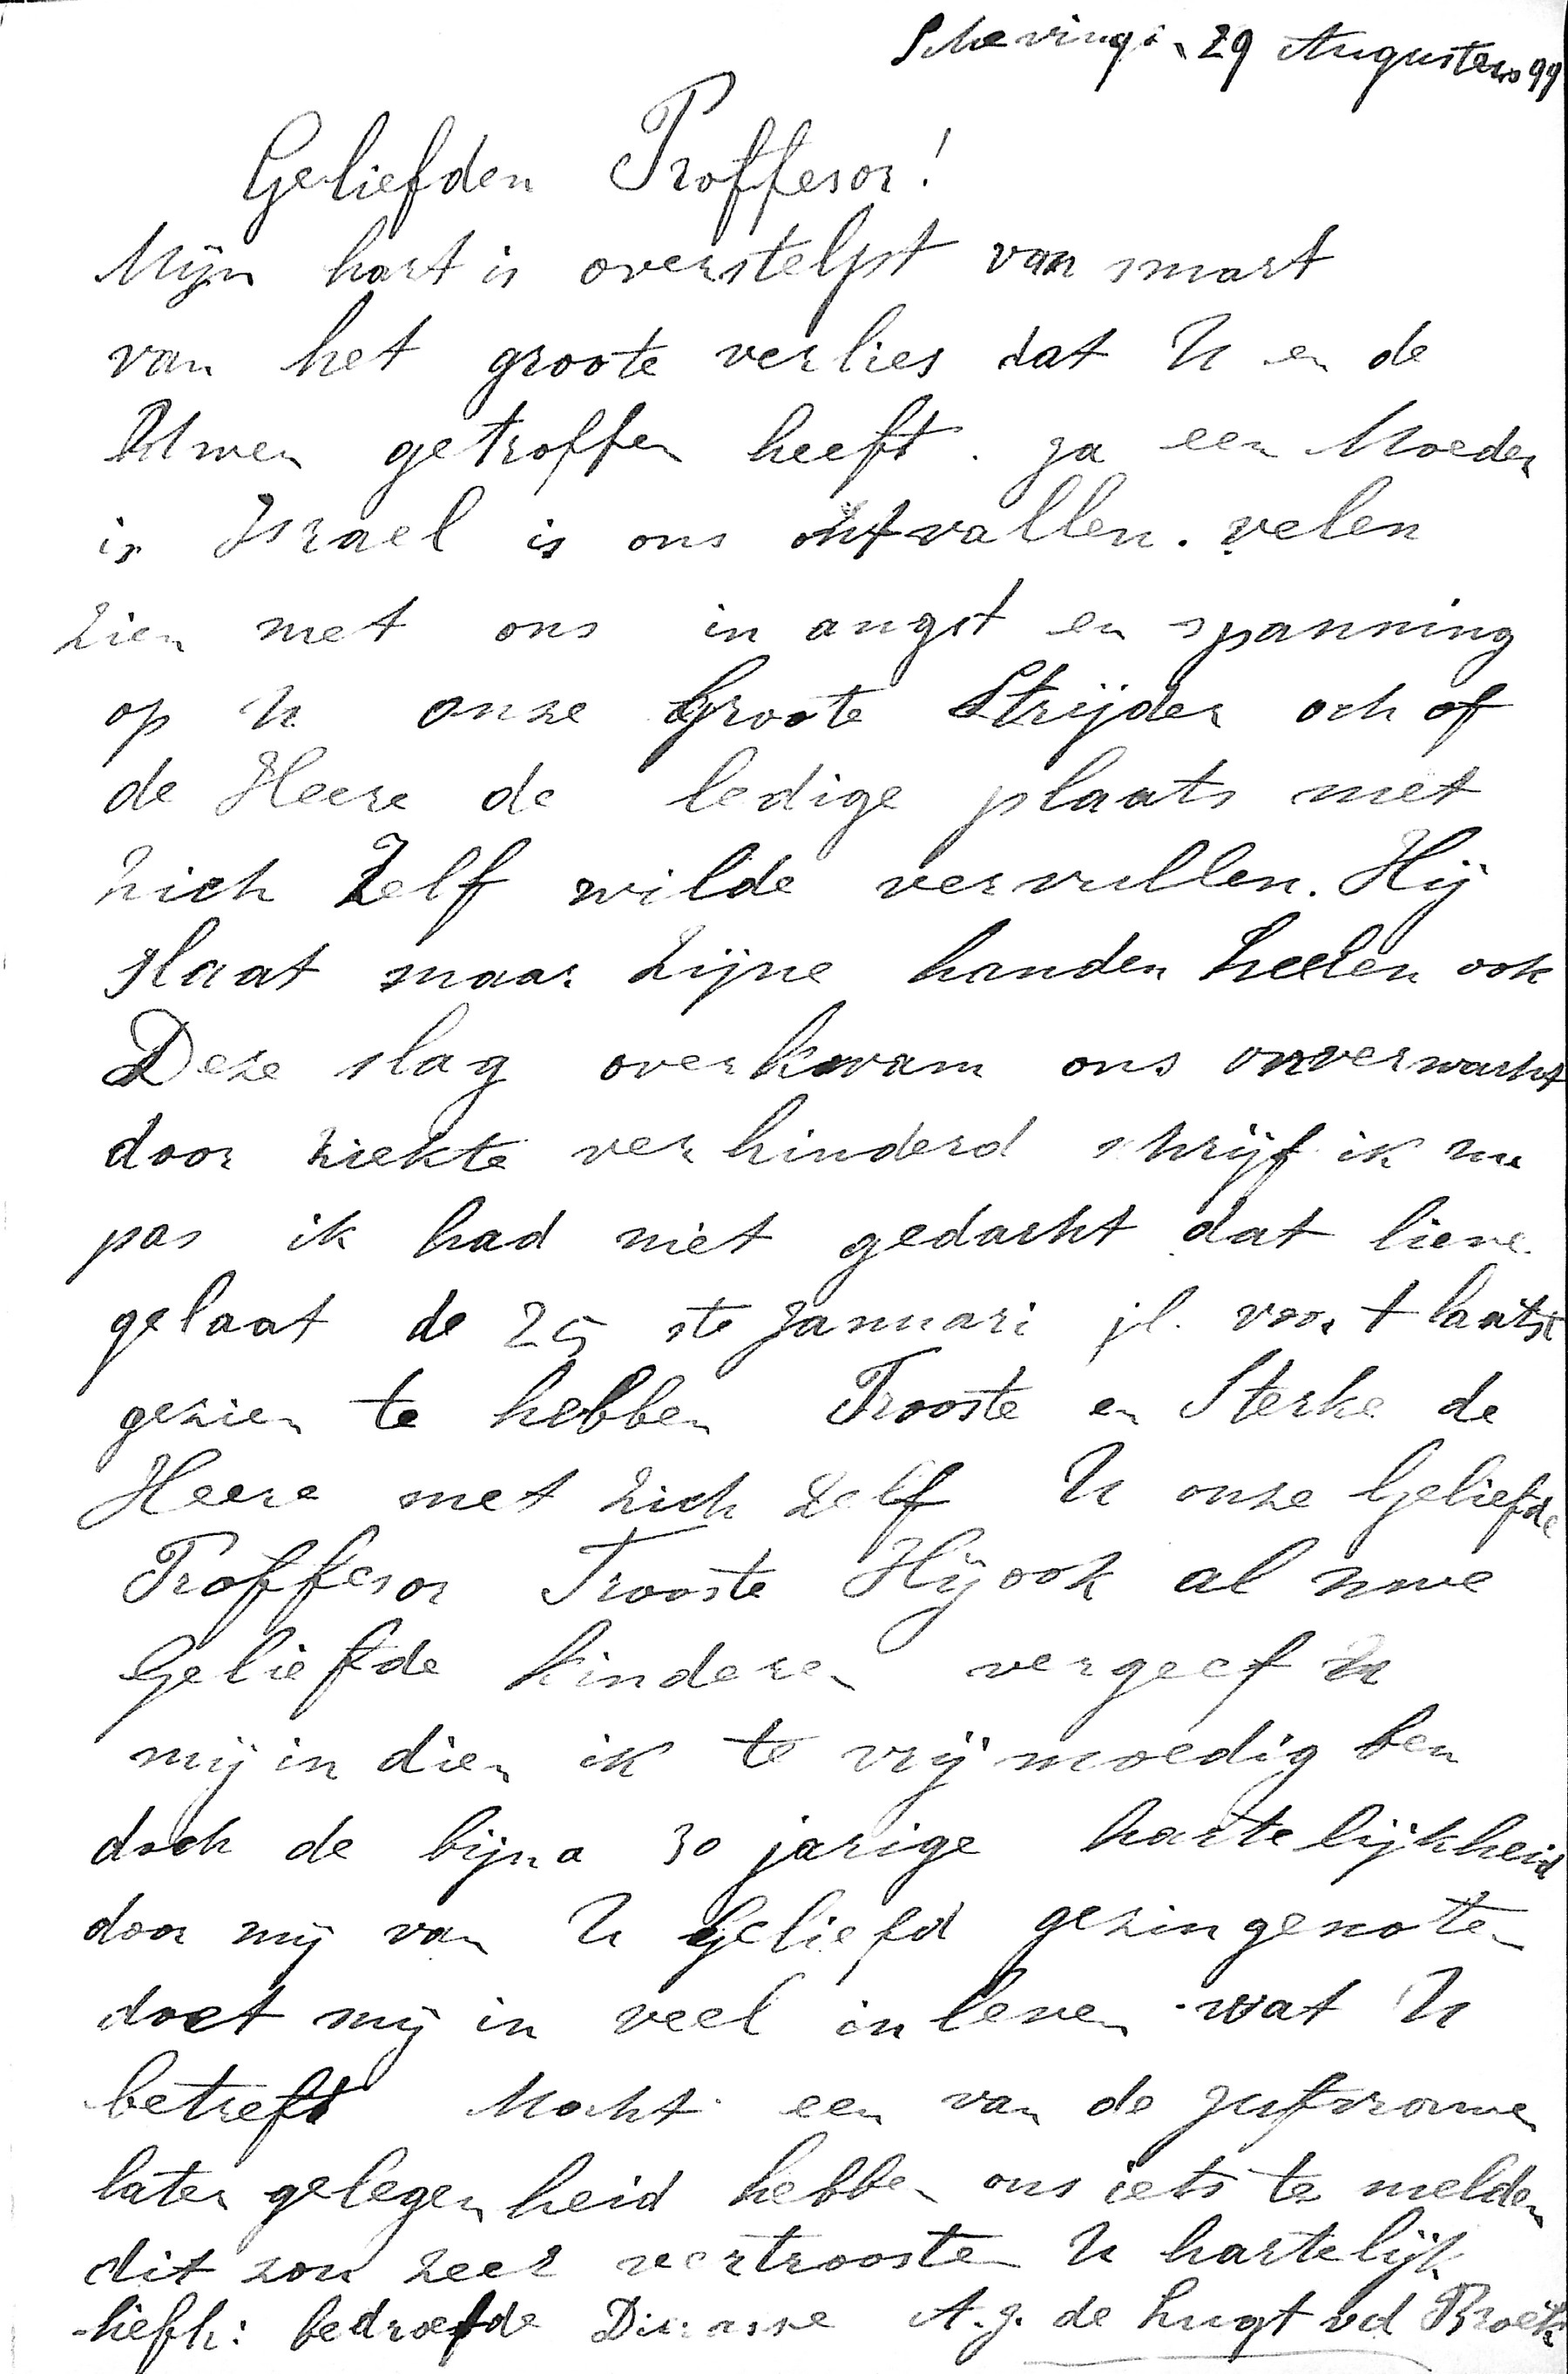 Schevingn 29 Augustus 99
Geliefden Proffesor!
Mijn hart is overstelpt van smart
van het groote verlies dat U en de
Uwen getroffen heeft. ja een Moeder
in Israel is ons ontvallen. velen
zien met ons in angst en spanning
op U onze Groote Strijder och of
de Heere de ledige plaats met
zich Zelf wilde vervullen. Hij
slaat maar zijne handen heelen ook
Deze slag overkwam ons onverwacht
door ziekte verhinderd schrijf ik nu
pas ik had niet gedacht dat lieve
gelaat de 25 ste Januari jl. voor t laatst
gezien te hebben Trooste en Sterke de
Heere met zich zelf U onze Geliefde
Proffesor Trooste Hij ook al uwe
Geliefde kinderen vergeef U
mij in dien ik te vrij moedig ben
doch de bijna 30 jarige hartelijkheid
door mij van U Geliefd gezin genoten
doet mij in veel in leven wat U
betreft Mocht een van de Jufvrouwen
later gelegenheid hebben ons iets te melden
dit zou zeer vertroosten U hartelijk
liefh: bedroefde A. J. de Lugt vd Broek